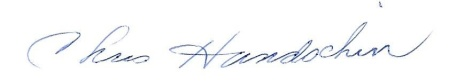 Chris Handochin